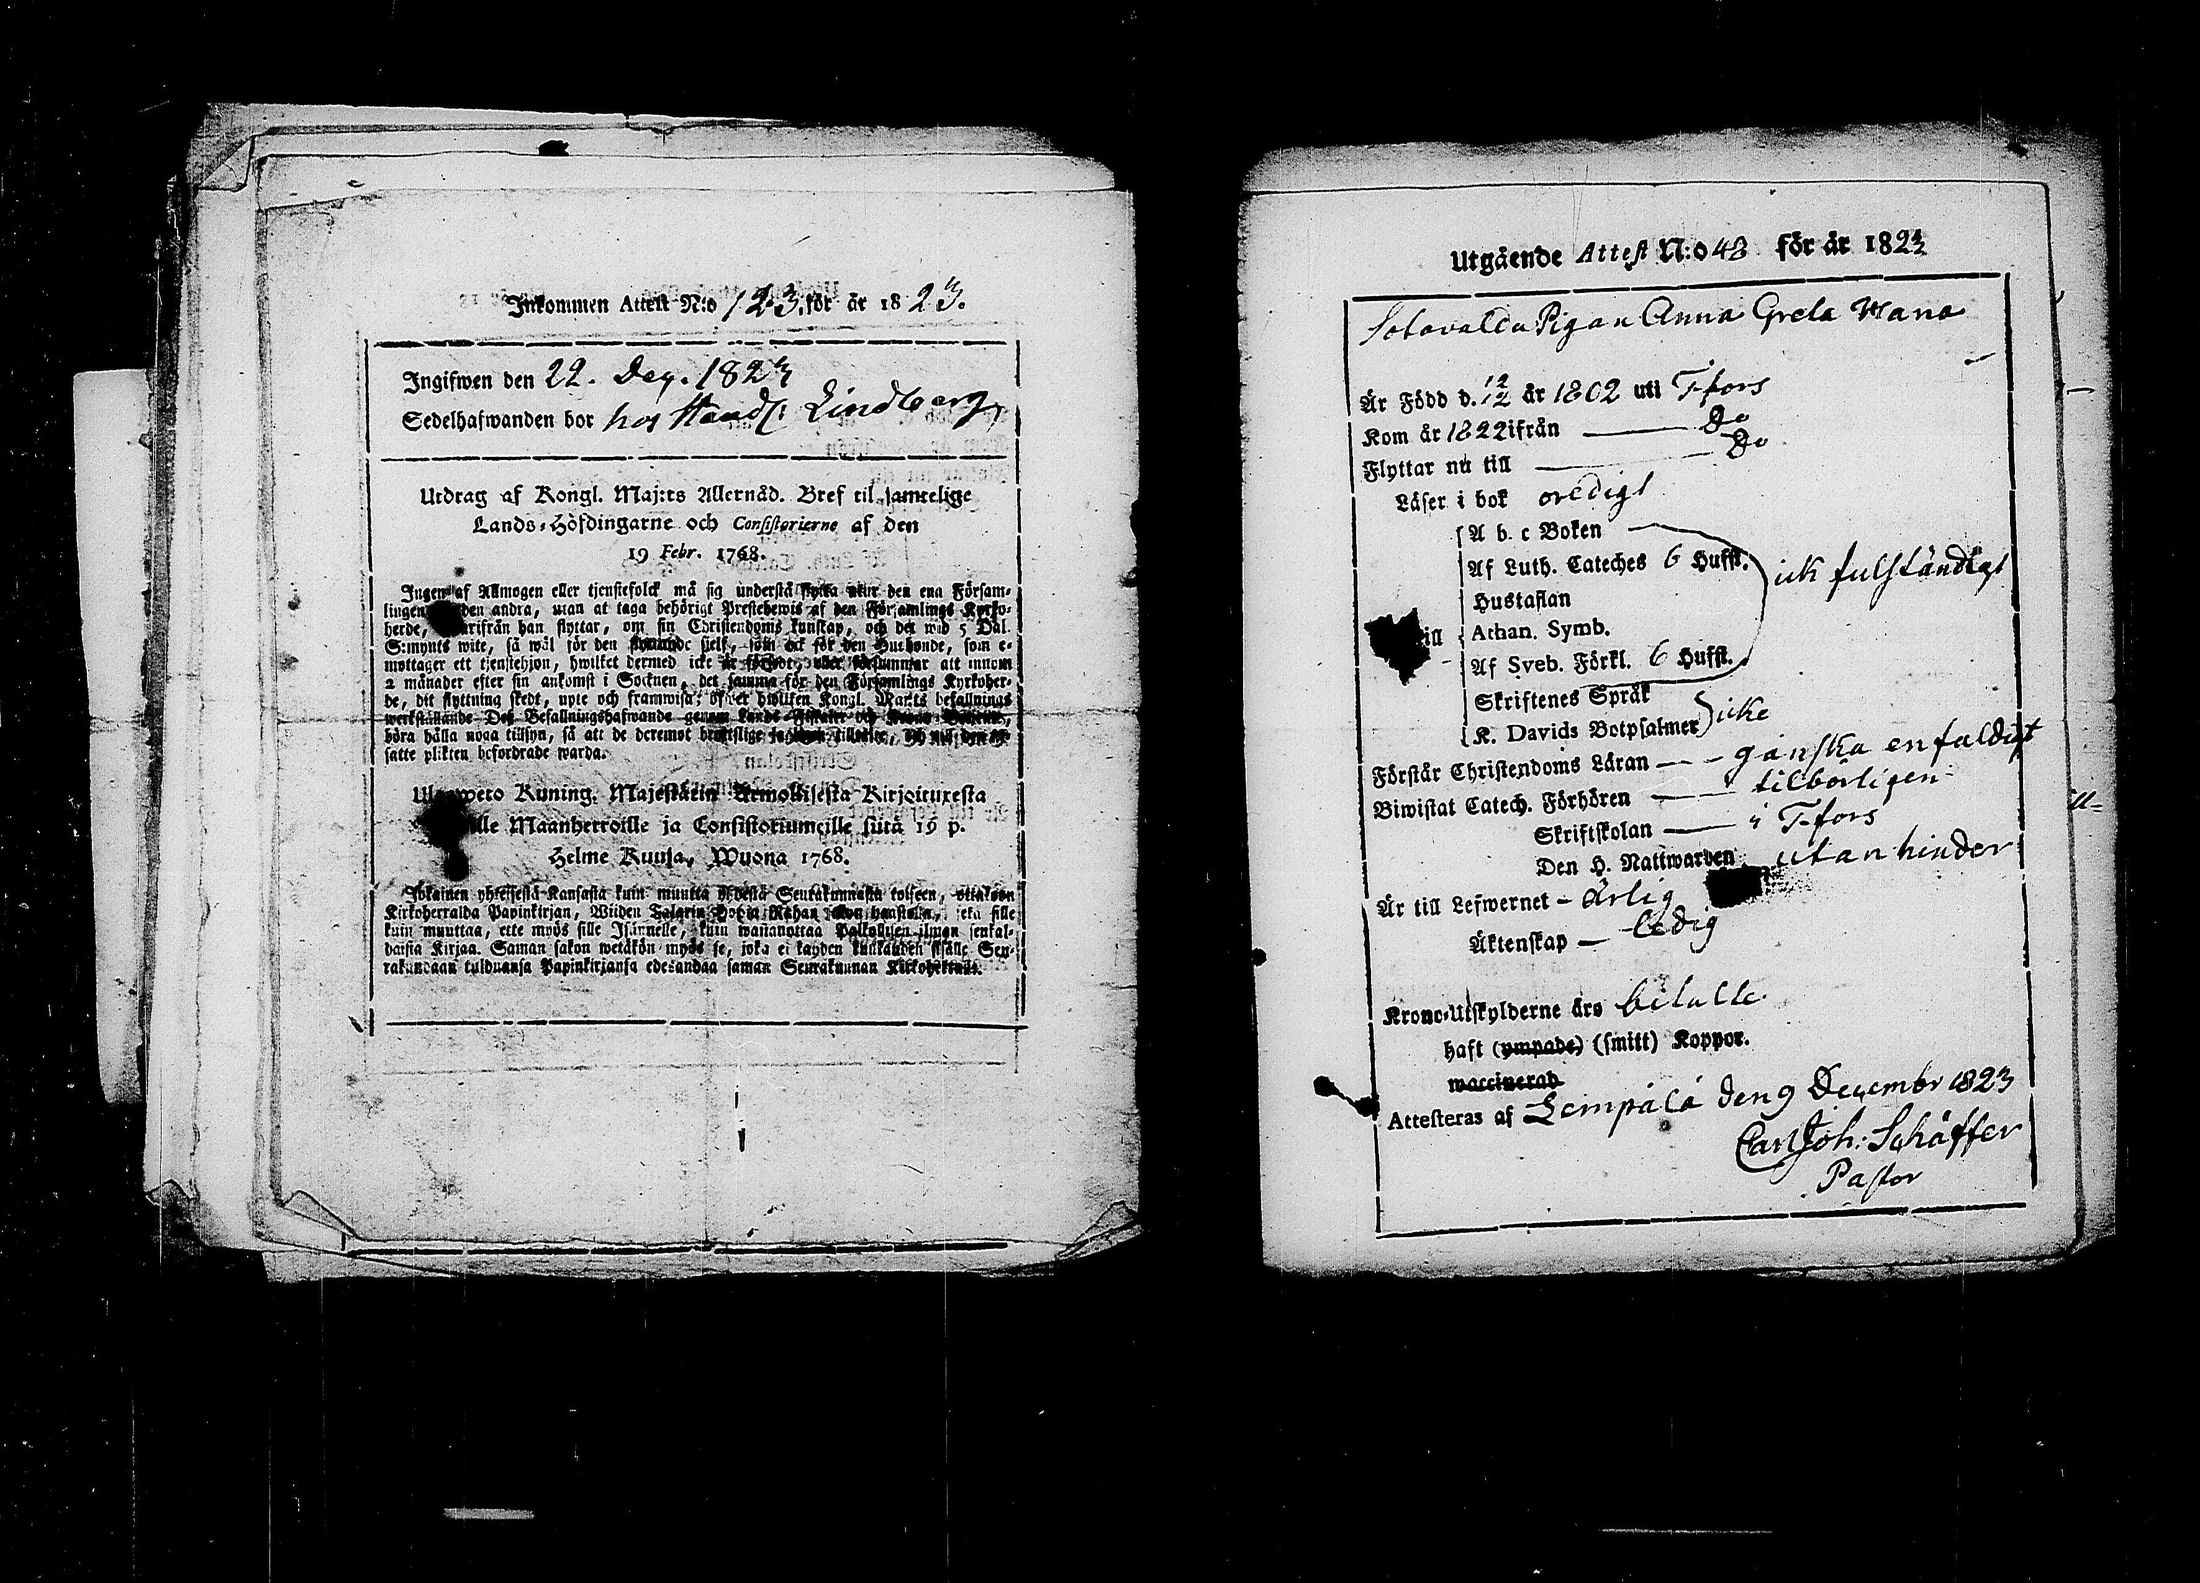 Inkommen Attest N:o 123. för år 1823.
Ingifwen den 22. Dec. 1823
Sedelhafwanden bor hos Handl: Lindberg
Utdrag af Kongl. Maj:ts Allernåd. Bref til samtelige
Lands-Höfdingarne och Consistorierne af den
19 Febr. 1768.
Ingen af Allmogen eller tjenstefolck må sig understå flytta utur den ena Försam-
lingen den andra, utan at taga behörigt Prestebewis af den Församlings Kyrko-
herde, hwarifrån han flyttar, om sin Christendoms kunskap, och det wid 5 Dal.
S:mynts wite, så wäl för den flyttande sjelf, som ock för den Husbonde, som e-
mottager ett tjenstehjon, hwilket dermed icke är försedt, eller försummar att innom
2 månader efter sin ankomst i Socknen, det samma för den Församlings Kyrkoher-
de, dit flyttning skedt, upte och framwisa; öfwer hwilken Kongl. Maj:ts befallnings
werkställande Des Befallningshafwande genom Lands-Fiskaler och Krono-Betjente,
böra hålla noga tillsyn, så att de deremot brottslige tilltalte, och til den
satte plikten befordrade warda.
Ulosweto Kuning. Majestätin Armollisesta Kirjoituxesta
lle Maanherroille ja Consistoriumeille siitä 19 p.
Helme Kuusa, Wuona 1768.
Jokainen yhteisestä Kansasta kuin muutta yhdestä Seurakunnasta toiseen, ottakoon
Kirkoherralda Papinkirjan, Wiiden Talarin Hopia Rahan sakon haastolla, sekä sille
kuin muuttaa, ette myös sille Isännelle, kuin wastanottaa Palkollisen ilman senkal-
daista Kirjaa. Saman sakon wetäkön myös se, joka ei kahden kuukauden sisälle Seu-
rakundaan tulduansa Papinkirjansa edesandaa saman Seurakunnan Kirkoherralle.
Utgående Attest N:o 48 för år 182
Sotavalda Pigan Anna Greta
Är Född d. 12/12 år 1802 uti T-fors
Kom år 1822 ifrån Do
Flyttar nu till Do
Läser i bok oredigt
A b c Boken
Af Luth. Cateches 6 Hufst. ick fulständigt
Hustaflan
till Athan. Symb.
Af Sveb. Förkl. 6 Hufst.
Skriftenes Språk
K. Davids Botpsalmer icke
Förstår Christendoms Läran ganska enfaldigt
Biwistat Catech. Förhören tilbörligen
Skriftskolan i T-fors
Den H. Nattwarden utan hinder
Är till Lefwernet ärlig
Äktenskap ledig
Krono-Utskylderne äro betalte
haft (ympade) (smitt) Koppor.
waccinerad
Attesteras af Lempälä den 9 Decembr 1823
Carl Joh: Schäffer
Pastor